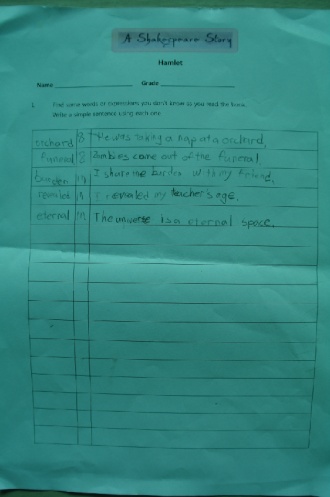 A Shakespeare Story
Hamlet
Name Grade
1. Find some words or expressions you don't know as you read the
Write a simple sentence using each one.
orchard 8 He was taking a nap at a orchard.
funeral 8 Zombies come out of the funeral.
burden 11 I share the burden with my friend.
revealed 11 I revealed my teacher's age.
eternal 11 The universe is a eternal space.